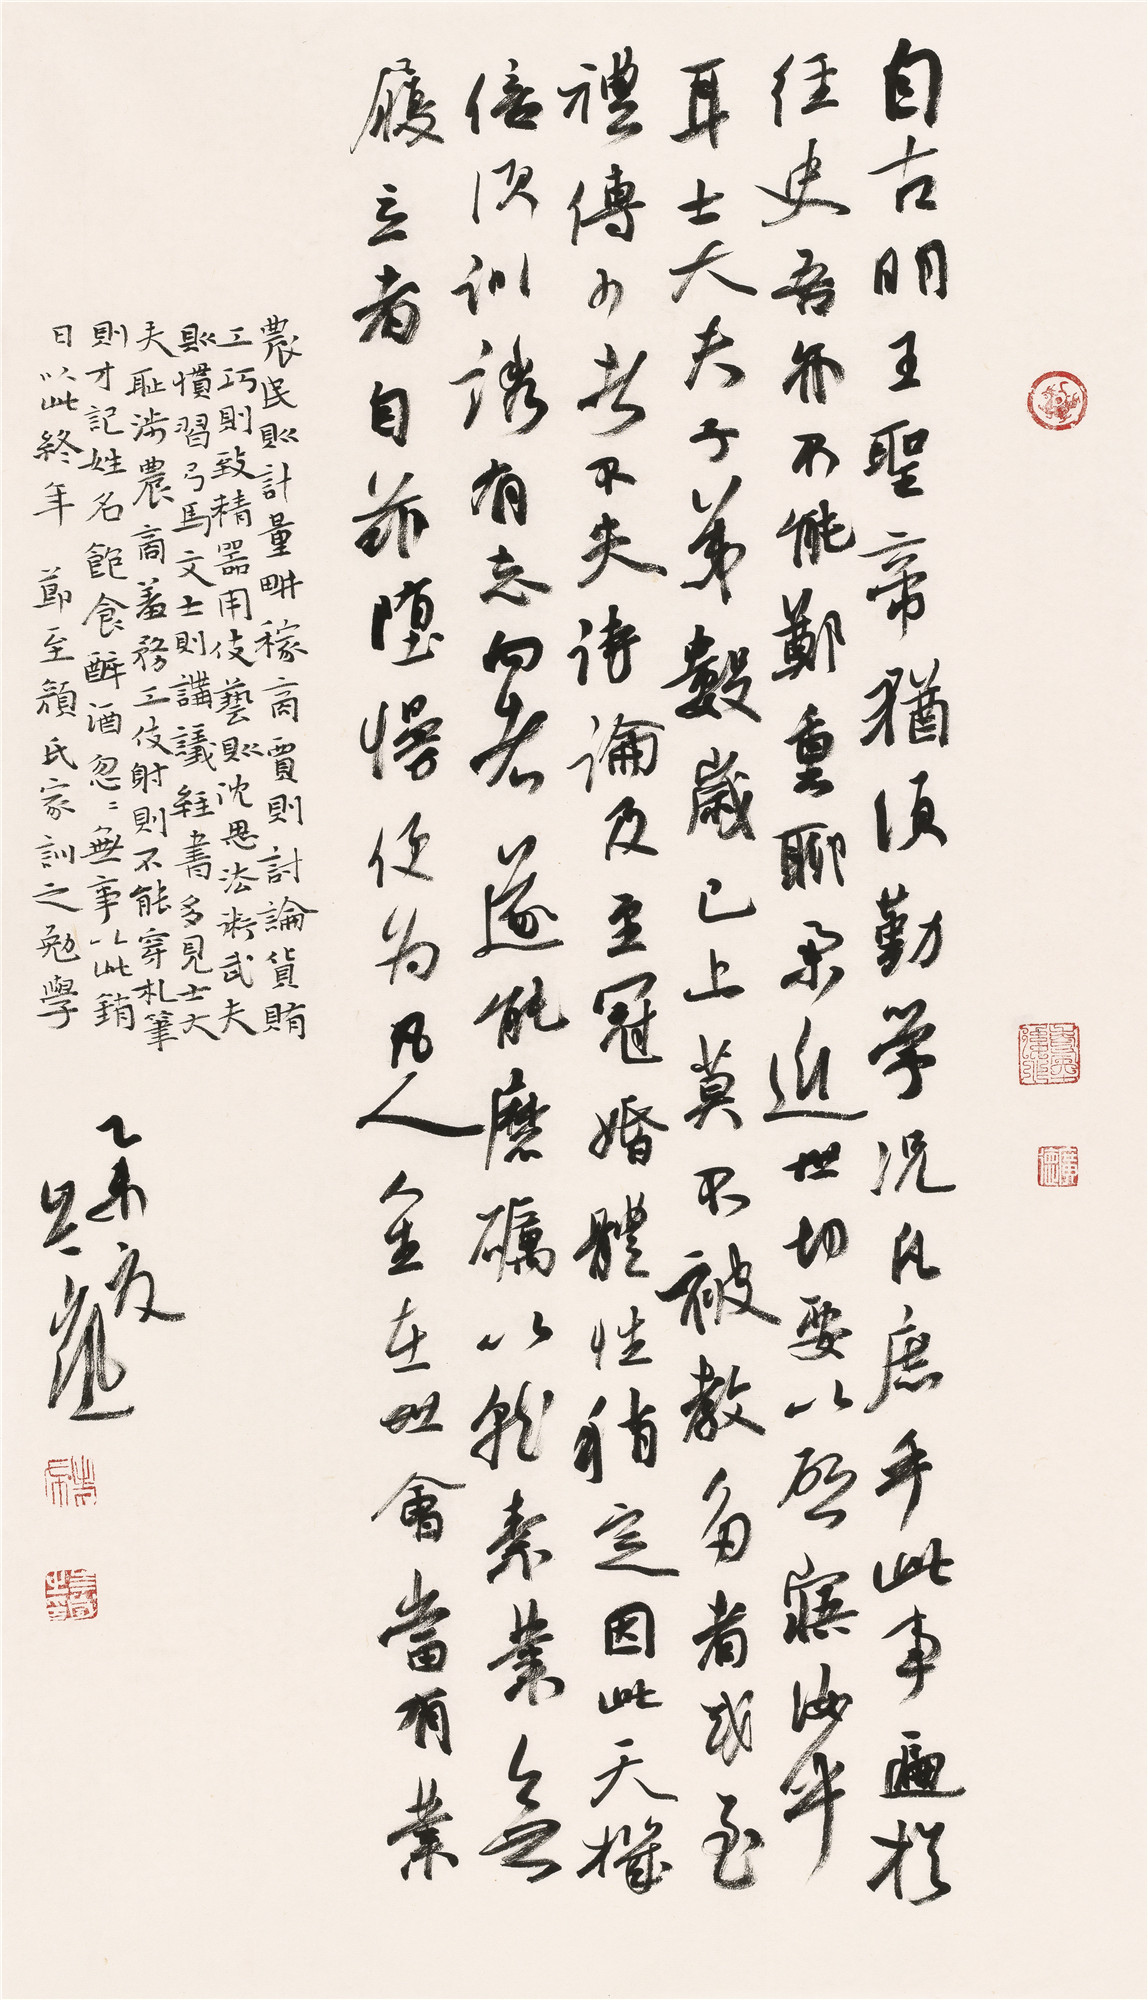 自古明王聖帝猶須勤學況凡庶乎此事遍於
經史吾亦不能鄭重聊舉近世切要以啓寤汝耳
耳士大夫子弟數歲已上莫不被教多者或至
禮傳少者不失詩論及至冠婚體性稍定因此天機
倍須訓誘有志向者遂能磨礪以就素業無
履立者自茲墮慢便为凡人人生在世會當有業
農民則計量畊稼商賈則討論貨賄
工巧則致精器用伎藝則沈思法術武夫
則慣習弓馬文士則講議經書多見士大
夫恥涉農商羞務工伎射則不能穿札筆
則才記姓名飽食醉酒忽〻無事以此銷
日以此終年 節至顏氏家訓之勉學
乙未夏